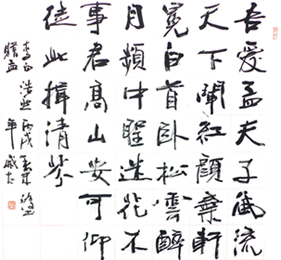 吾愛孟夫子風流
天下聞紅顏棄軒
冕白首臥松雲醉
月頻中聖迷花不
事君高山安可仰
徒此揖清芬
李白
贈孟
浩然
丙戌